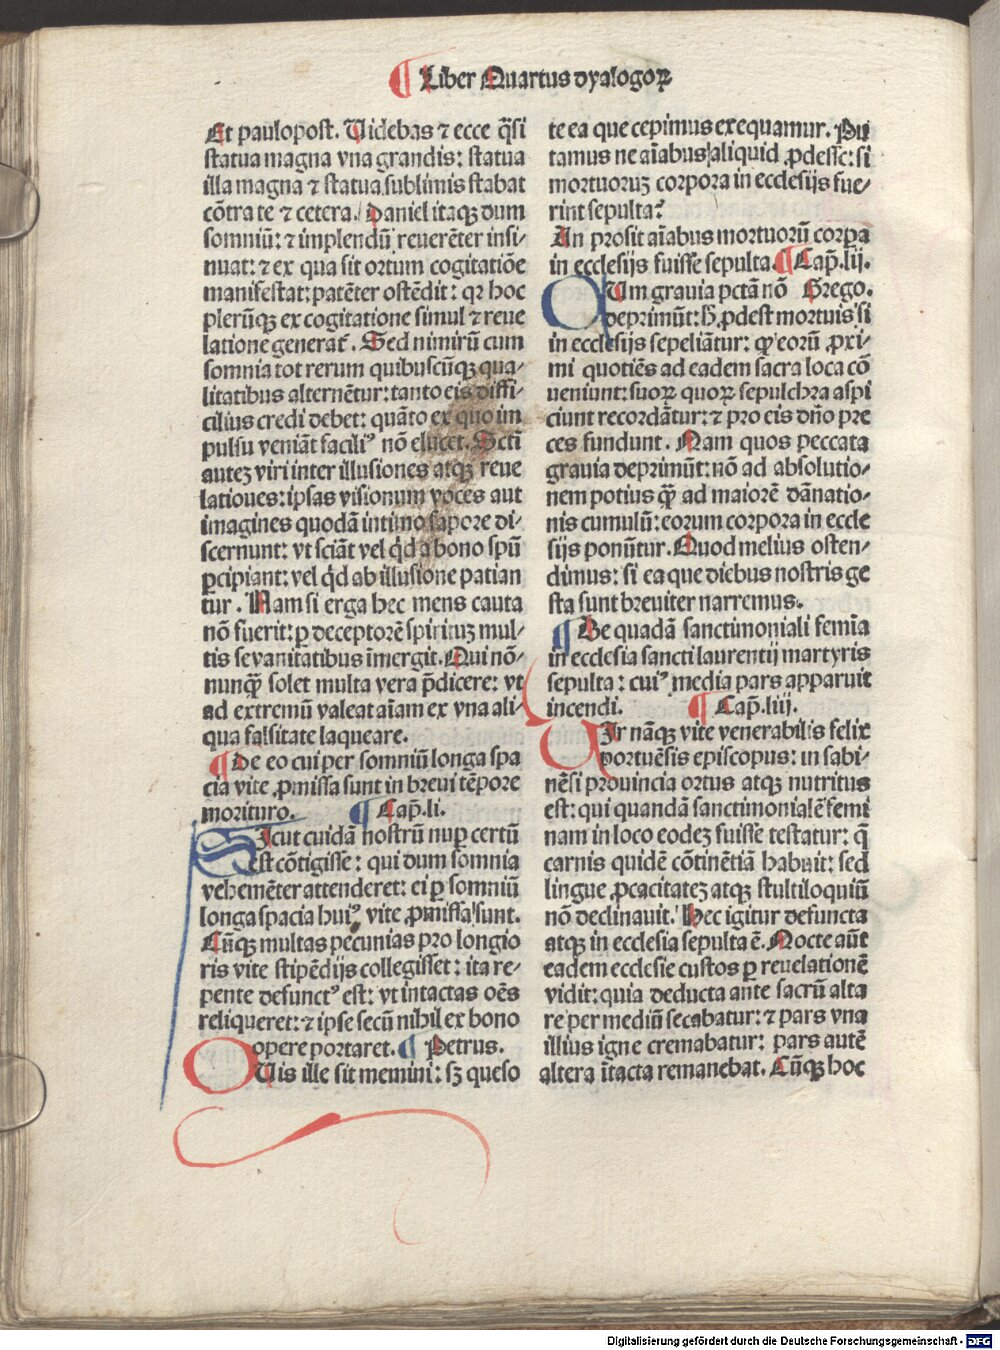 ¶ Liber Quartus dyalogoꝝ
Et paulopost. Uidebas ⁊ ecce q̄si
statua magna vna grandis: statua
illa magna ⁊ statua sublimis stabat
cōtra te ⁊ cetera. Daniel itaqꝫ dum
somniū: ⁊ implendū reuerēter insi⸗
nuat: ⁊ ex qua sit ortum cogitatiōe
manifestat: patēter ostēdit: qꝛ hoc
plerūqꝫ ex cogitatione simul ⁊ reue
latione generat̄. Sed nimirū cum
somnia tot rerum quibuscūqꝫ qua⸗
litatibus alternētur: tanto eis diffi⸗
cilius credi debet: quāto ex quo im
pulsu veniāt faciliꝰ nō elucet. Scti
auteꝫ viri inter illusiones atqꝫ reue
lationes: ipsas visionum voces aut
imagines quodā intimo sapore di⸗
scernunt: vt sciāt vel qͥd a bono spū
ꝑcipiant: vel qͥd ab illusione patian
tur. Nam si erga hec mens cauta
nō fuerit: ꝑ deceptorē spirituꝫ mul⸗
tis se vanitatibus īmergit. Qui nō⸗
nunqꝫ̄ solet multa vera p̄dicere: vt
ad extremū valeat aīam ex vna ali⸗
qua falsitate laqueare.
¶ De eo cui per somniū longa spa
cia vite ꝓmissa sunt in breui tēpore
morituro. ¶ Cap̄. li.
SIcut cuidā nostrū nuꝑ certū
est cōtigisse: qui dum somnia
vehemēter attenderet: ei ꝑ somniū
longa spacia huiꝰ vite ꝓmissa sunt.
Cūqꝫ multas pecunias pro longio
ris vite stipēdijs collegisset: ita re⸗
pente defunctꝰ est: vt intactas oēs
reliqueret: ⁊ ipse secū nihil ex bono
opere portaret. ¶ Petrus.
QUis ille sit memini: sꝫ queso
te ea que cepimus exequamur. Pu
tamus ne aīabus aliquid ꝓdesse: si
mortuoruꝫ corpora in ecclesijs fue⸗
rint sepulta?
An prosit aīabus mortuorū corꝑa
in ecclesijs fuisse sepulta. ¶ Cap̄. lij.
QUm grauia pctā nō Grego.
deprimūt: h̄ ꝓdest mortuis si
in ecclesijs sepeliātur: qꝙ eorū ꝓxi⸗
mi quotiēs ad eadem sacra loca cō
ueniunt: suoꝝ quoꝝ sepulchra aspi
ciunt recordātur: ⁊ pro eis dn̄o pre
ces fundunt. Nam quos peccata
grauia deprimūt: nō ad absolutio⸗
nem potius qꝫ̄ ad maiorē dānatio⸗
nis cumulū: eorum corpora in eccle
sijs ponūtur. Quod melius osten⸗
dimus: si ea que diebus nostris ge
sta sunt breuiter narremus.
¶ De quadā sanctimoniali femīa
in ecclesia sancti laurentij martyris
sepulta: cuiꝰ media pars apparuit
incendi. ¶ Cap̄. liij.
UIr nāqꝫ vite venerabilis felix
portuēsis episcopus: in sabi⸗
nēsi prouincia ortus atqꝫ nutritus
est: qui quandā sanctimonialē femi
nam in loco eodeꝫ fuisse testatur: q̄
carnis quidē cōtinētiā habuit: sed
lingue ꝓcacitateꝫ atqꝫ stultiloquiū
nō declinauit. Hec igitur defuncta
atqꝫ in ecclesia sepulta ē. Nocte aūt
eadem ecclesie custos ꝑ reuelationē
vidit: quia deducta ante sacrū alta
re per mediū secabatur: ⁊ pars vna
illius igne cremabatur: pars autē
altera ītacta remanebat. Cūqꝫ hoc
Digitalisierung gefördert durch die Deutsche Forschungsgemeinschaft - DFG